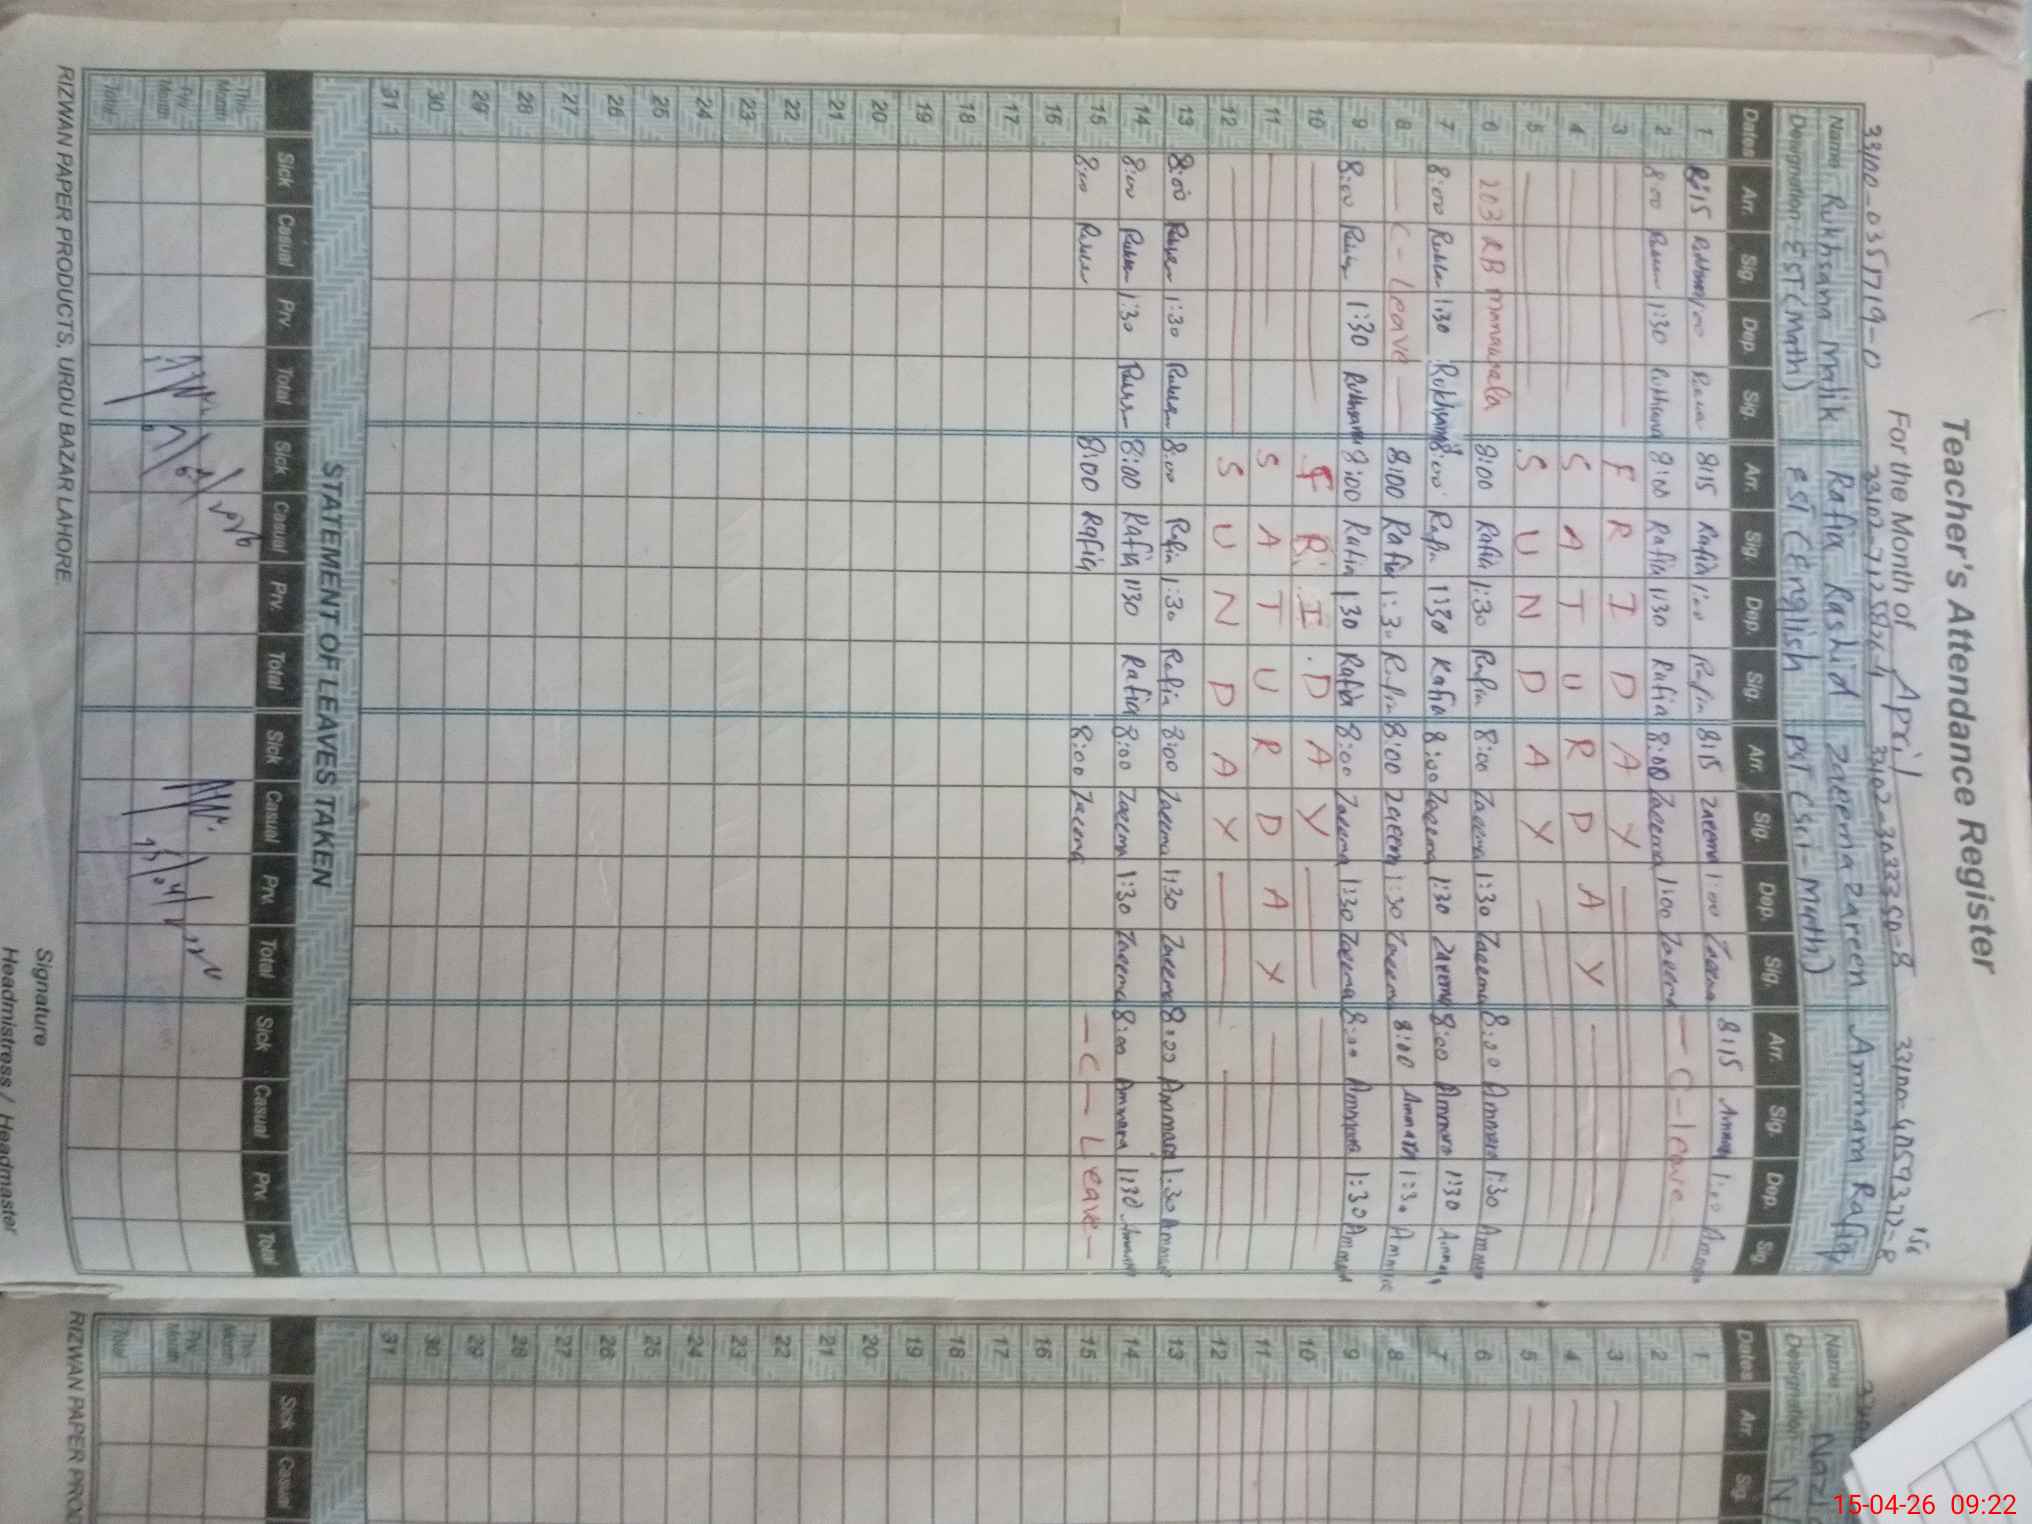 Teacher's Attendance Register
For the Month of April
33100-0351719-0
Name: Rukhsana Malik Rafia Rashid Zaeema Zareen Ammara Rafiq
Designation: EST (Math) EST (English PST (Sci-Math)
Dates Arr. Sig. Dep. Sig. Arr. Sig. Dep. Sig. Arr. Sig. Dep. Sig. Arr. Sig. Dep. Sig.
1 8:15 1:00 8:15 Rafia 1:00 Rafia 8:15 Zaeema 1:00 Zaeema 8:15 1:00
2 8:00 1:30 Rukhsana 8:00 Rafia 1:30 Rafia 8:00 Zaeema 1:00 Zaeema — C-leave —
3 F R I D A Y
4 S A T U R D A Y
5 S U N D A Y
6 203 RB manawala 8:00 Rafia 1:30 Rafia 8:00 Zaeema 1:30 Zaeema 8:00 Ammara 1:30
7 8:00 1:30 Rukhsana 8:00 Rafia 1:30 Rafia 8:00 Zaeema 1:30 Zaeema 8:00 Ammara 1:30
8 — C-leave — 8:00 Rafia 1:30 Rafia 8:00 Zaeema 1:30 Zaeema 8:00 Ammara 1:30
9 8:00 1:30 Rukhsana 8:00 Rafia 1:30 Rafia 8:00 Zaeema 1:30 Zaeema 8:00 Ammara 1:30
10 F R I D A Y
11 S A T U R D A Y
12 S U N D A Y
13 8:00 1:30 8:00 Rafia 1:30 Rafia 8:00 Zaeema 1:30 Zaeema 8:00 Ammara 1:30
14 8:00 1:30 8:00 Rafia 1:30 Rafia 8:00 Zaeema 1:30 Zaeema 8:00 Ammara 1:30
15 8:00 8:00 Rafia 8:00 Zaeema — C — Leave —
16
17
18
19
20
21
22
23
24
25
26
27
28
29
30
31
STATEMENT OF LEAVES TAKEN
Sick Casual Prv. Total Sick Casual Prv. Total Sick Casual Prv. Total Sick Casual Prv. Total
This Month
Prv. Month
Total
RIZWAN PAPER PRODUCTS, URDU BAZAR LAHORE.
Signature
Headmistress / Headmaster
Name
Designation
Dates Arr. Sig.
1
2
3
4
5
6
7
8
9
10
11
12
13
14
15
16
17
18
19
20
21
22
23
24
25
26
27
28
29
30
31
Sick Casual
This Month
Prv. Month
Total
RIZWAN PAPER PROD
15-04-26 09:22